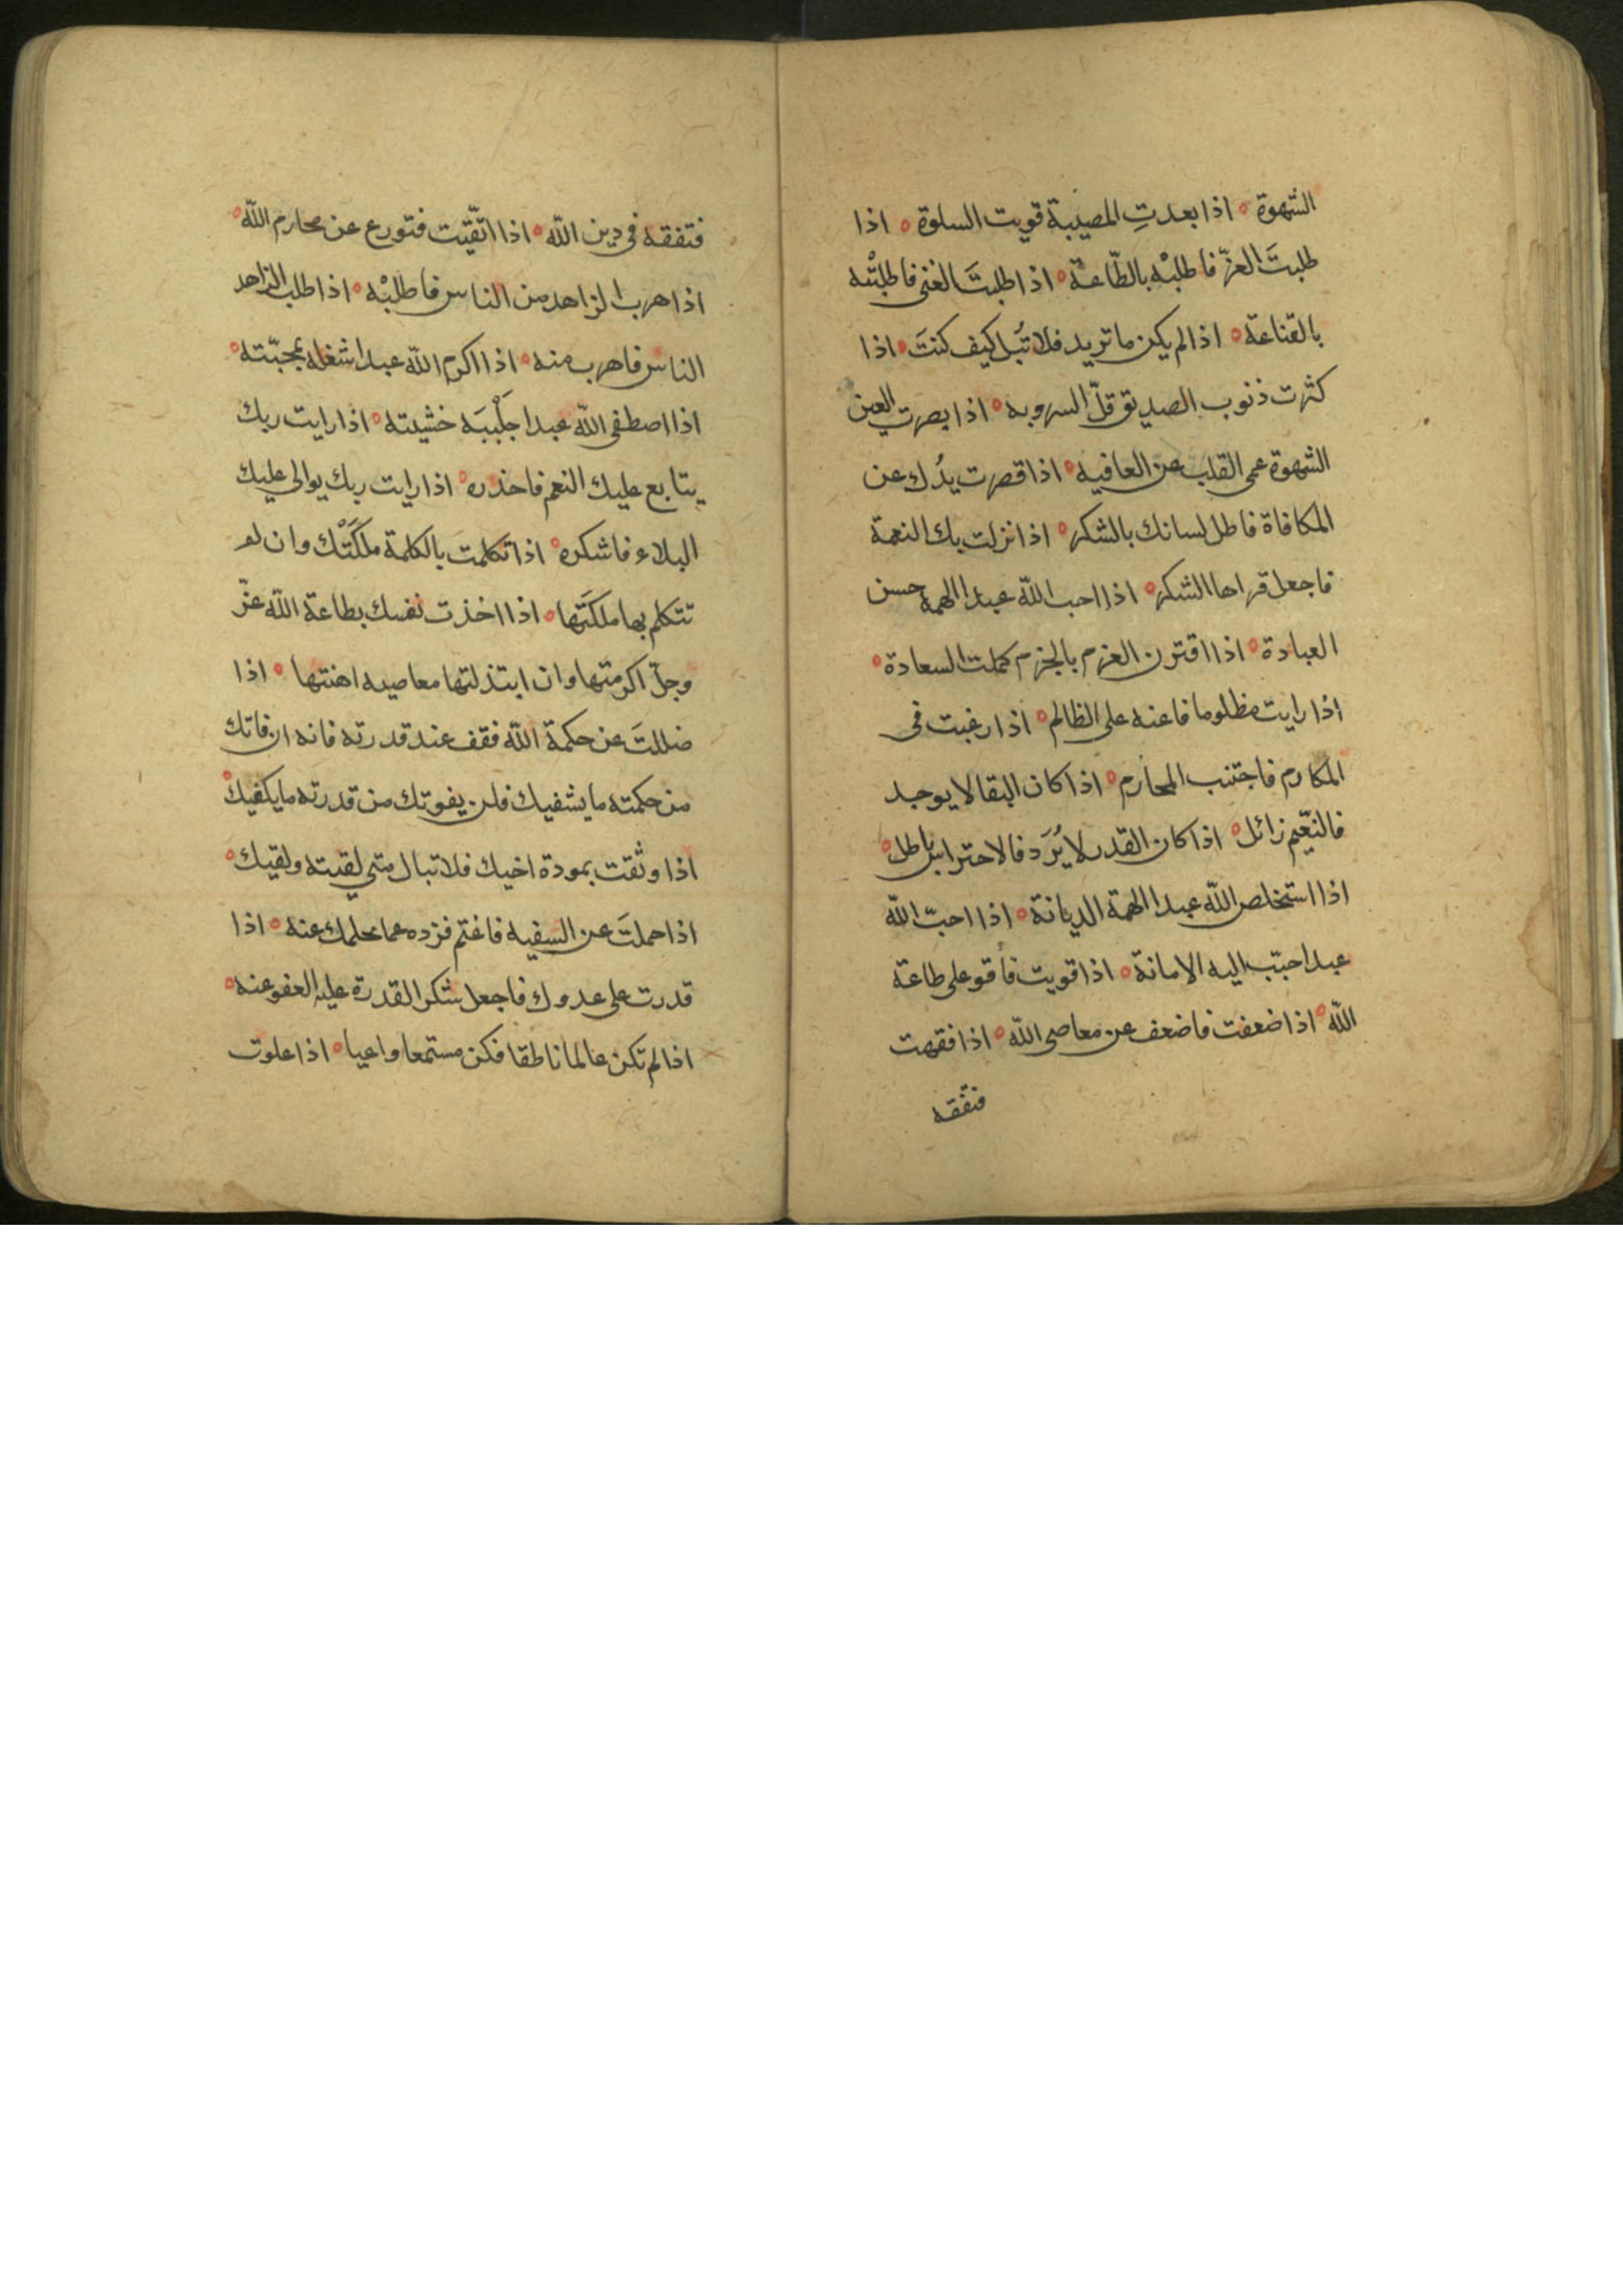 الشهوة ه اذا بعدتِ المصيبة قويت السلوة ه اذا
طلبتَ العزّ فاطلبْه بالطّاعة ه اذا طلبتَ الغنى فاطلبْه
بالقناعة ه اذا لم يكن ما تريد فلا تُبل كيف كنتَ ه اذا
كثرت ذنوب الصديق قلّ السرور به ه اذا بصرت العين
الشهوة عمى القلب عن العافيه ه اذا قصرت يدُك عن
المكافاة فاطل لسانك بالشكر ه اذا نزلت بك النعمة
فاجعل قراها الشكر ه اذا احب الله عبدا الهمه حسن
العبادة ه اذا اقترن العزم بالجزم كملت السعادة ه
اذا رايت مظلوما فاعنه على الظالم ه اذا رغبت فى
المكارم فاجتنب المحارم ه اذا كان البقا لا يوجد
فالنّعيم زائل ه اذا كان القدر لا يُرَد فالاحتراس باطل ه
اذا استخلص الله عبدا الهمة الديانة ه اذا احبّ الله
عبدا حبّب اليه الامانة ه اذا قويت فأقو على طاعة
الله ه اذا ضعفت فاضعف عن معاصى الله ه اذا فقهت
فتفقه
فتفقه فى دين الله ه اذا اتّقيت فتورع عن محارم الله ه
اذا هرب الزاهد من الناس فاطلبْه ه اذا طلب الزاهد
الناس فاهرب منه ه اذا اكرم الله عبدا شغله بمحبّته ه
اذا اصطفى الله عبدا جَلْببَه خشيته ه اذا رايت ربك
يتابع عليك النعم فاحذره ه اذا رايت ربك يوالى عليك
البلاء فاشكره ه اذا تكلمت بالكلمة ملكَتْك وان لم
تتكلم بها ملكتَها ه اذا اخذت نفسك بطاعة الله عزّ
وجلّ اكرمتها وان ابتذلتها معاصيه اهنتها ه اذا
ضللتَ عن حكمة الله فقف عند قدرته فانه ان فاتك
من حكمته ما يشفيك فلن يفوتك من قدرته ما يكفيك ه
اذا وثقت بمودة اخيك فلا تبال متى لقيته ولقيك ه
اذا حملتَ عن السفيه فاغتم فزده عما بحلمك عنه ه اذا
قدرت على عدوك فاجعل شكر القدرة عليه العفو عنه ه
اذا لم تكن عالما ناطقا فكن مستمعا واعيا ه اذا علوت